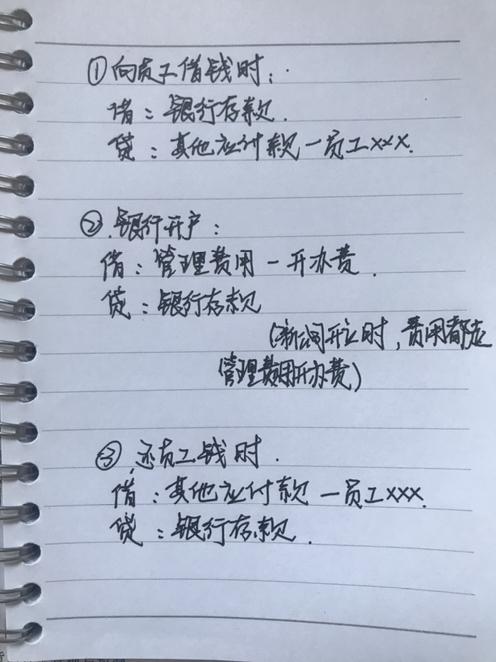 ①向员工借钱时:
借:银行存款.
贷:其他应付款一员工xxx.
②.银行开户:
借:管理费用一开办费.
贷:银行存款
(新公司开立时,费用都走
管理费用开办费)
③.还员工钱时.
借:其他应付款一员工xxx.
贷:银行存款.